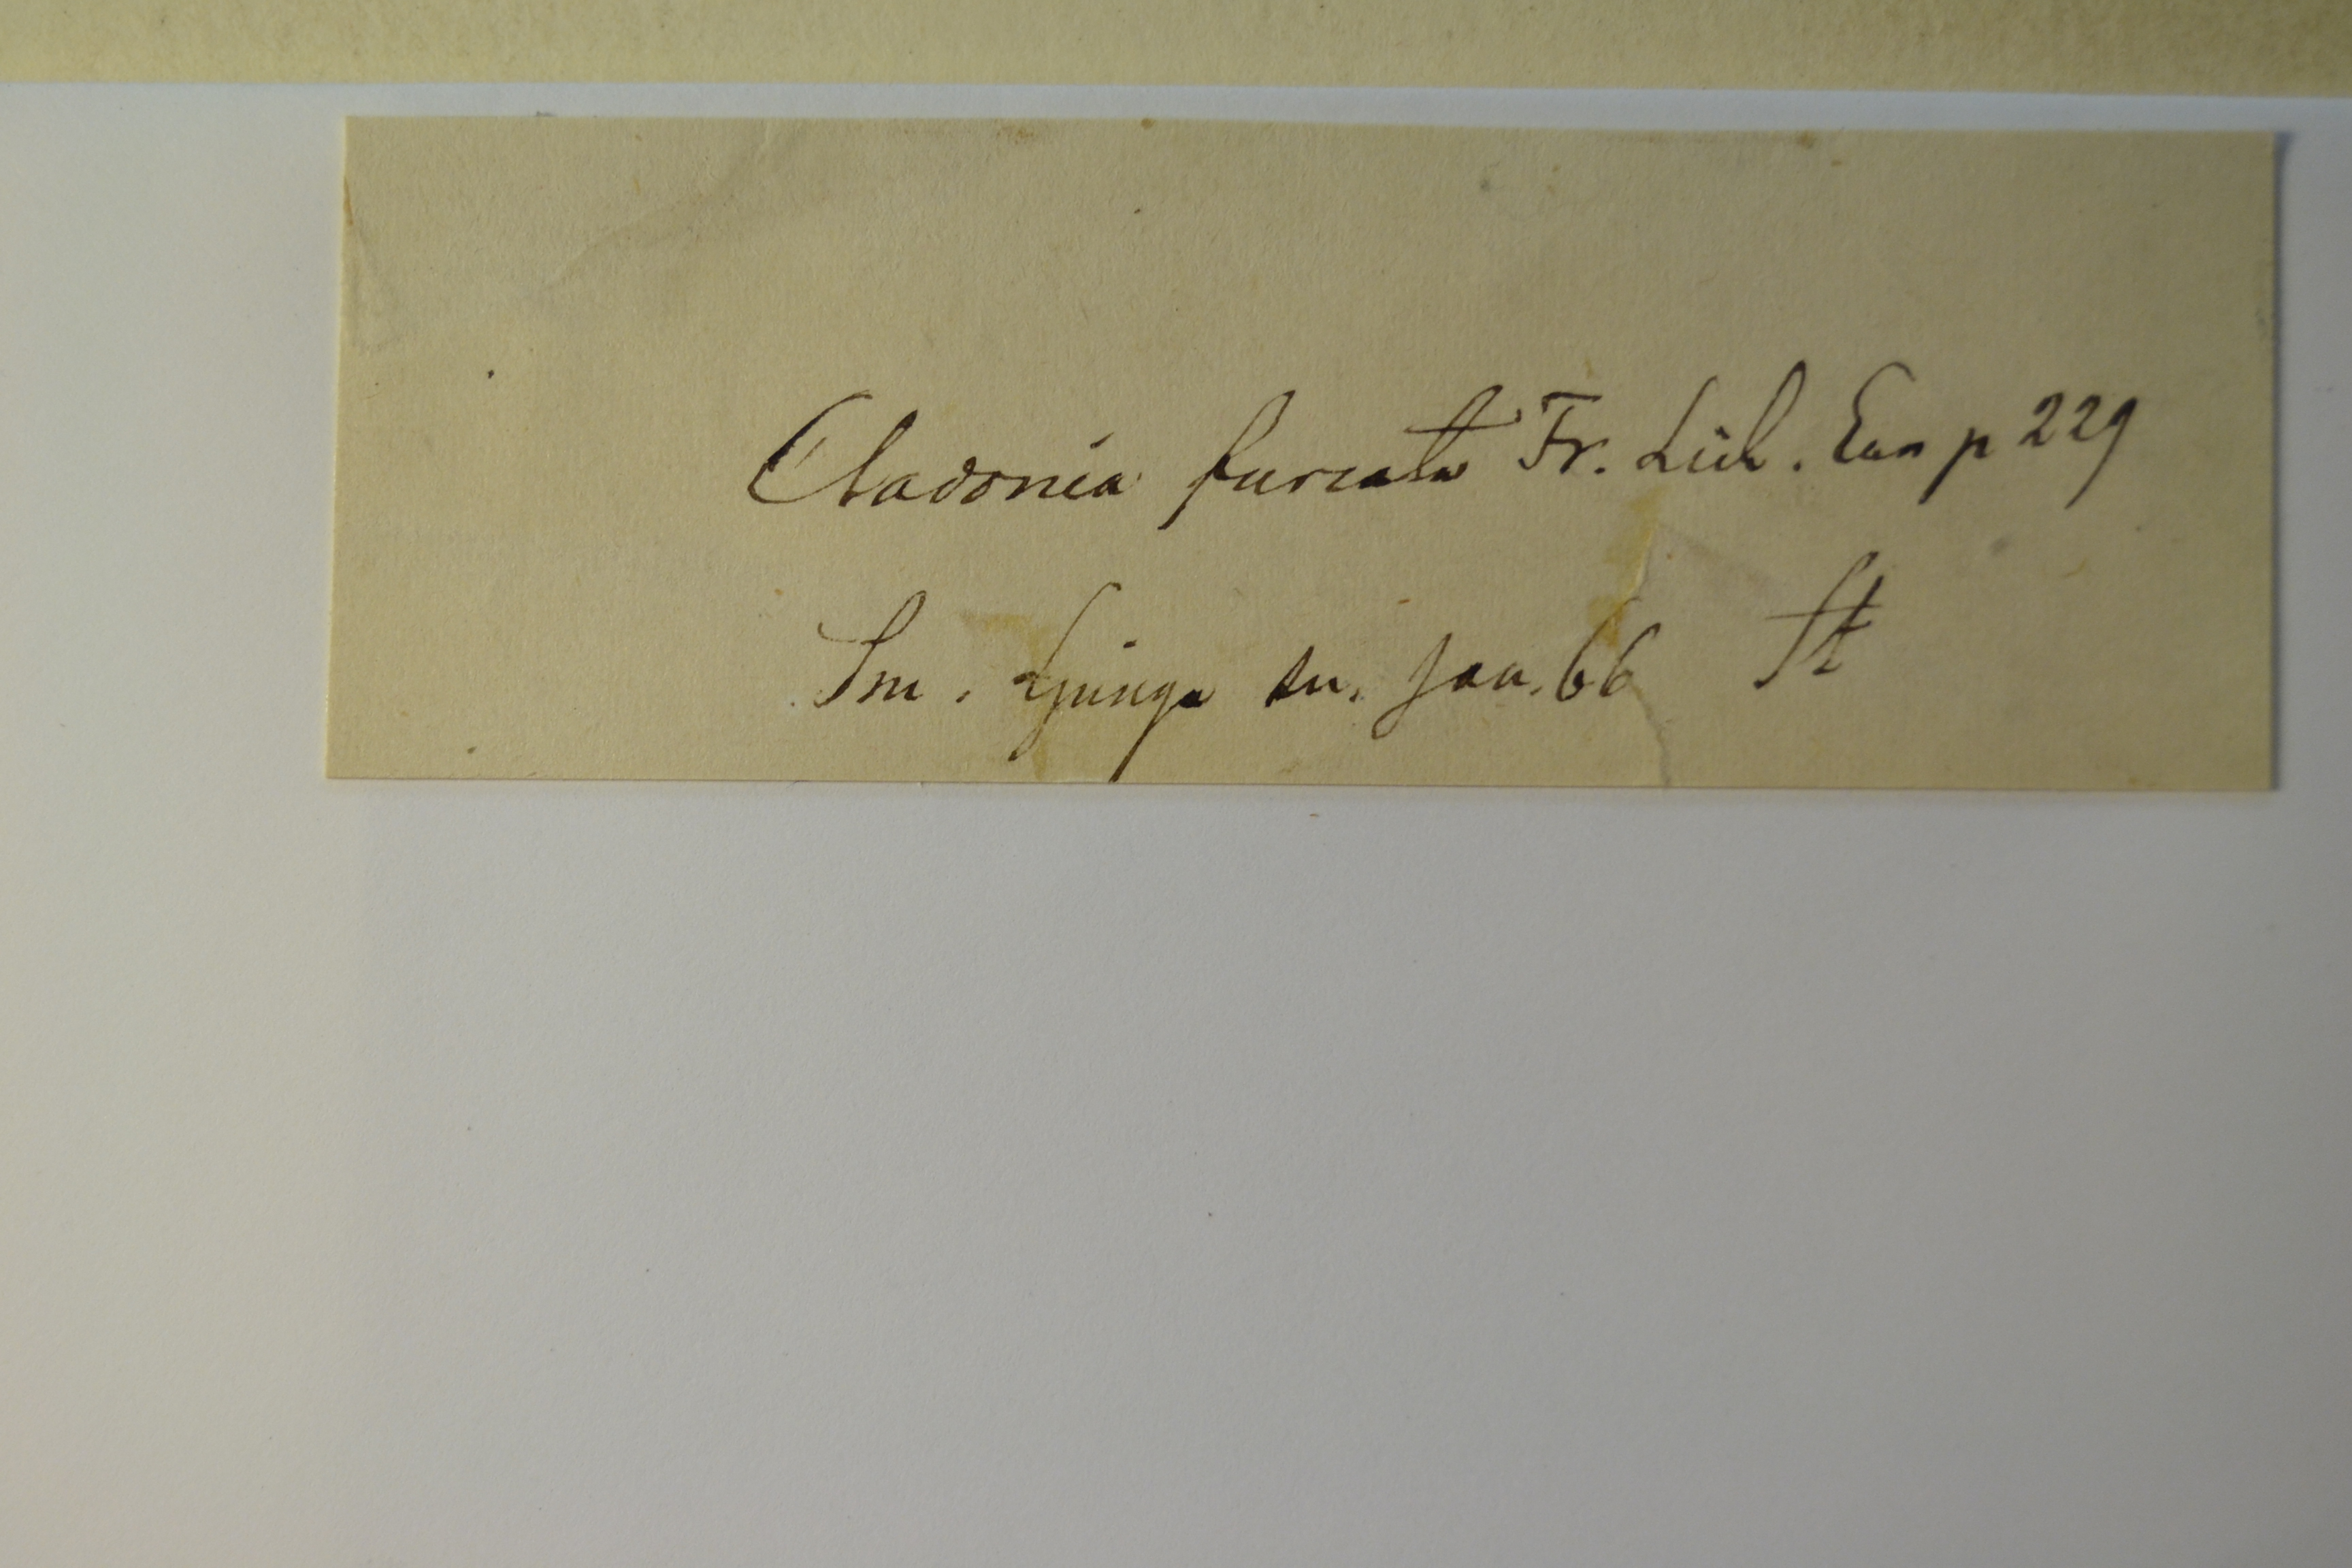 Cladonia furcata Fr. Lich. Eur p 229
Sm. Ljunga sn. Jan. 66 St